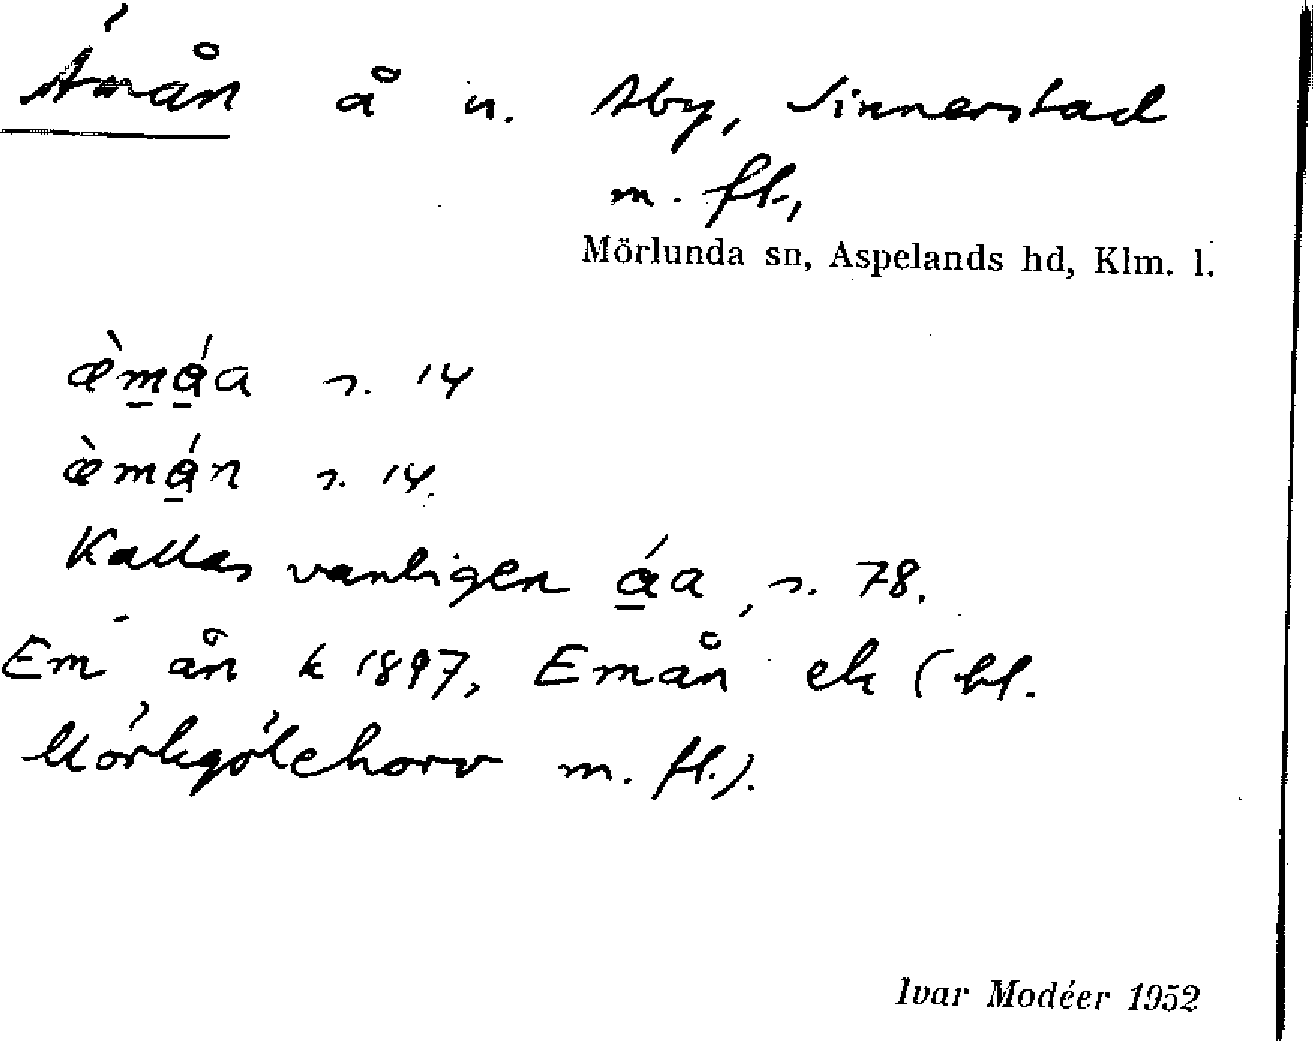 Ämån å n. Åby, Sinnerstad
m. fl.,
Mörlunda sn, Aspelands hd, Klm. l.
æ̀mǻa s. 14
æ̀mǻn s. 14.
Kallas vanligen ǻa, s. 78.
Em ån k 1897, Emån ek (bl.
Mörkgölehorv m. fl.).
Ivar Modéer 1952